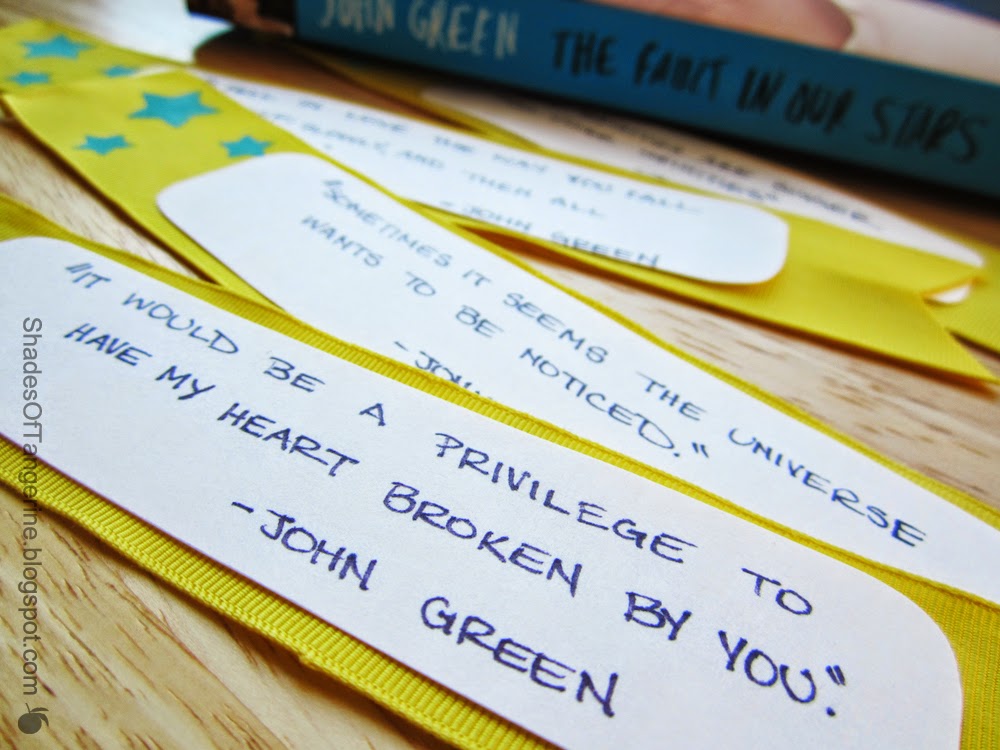 JOHN GREEN THE FAULT IN OUR STARS
LOVE THE WAY YOU FALL
AND THEN ALL
- JOHN GREEN
"SOMETIMES IT SEEMS THE UNIVERSE
WANTS TO BE NOTICED."
"IT WOULD BE A PRIVILEGE TO
HAVE MY HEART BROKEN BY YOU."
- JOHN GREEN
ShadesOfTangerine.blogspot.com